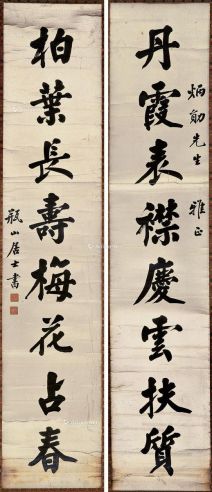 炳勛先生 雅正
丹霞表襟慶雲扶質
柏葉長壽梅花占春
瓶山居士書